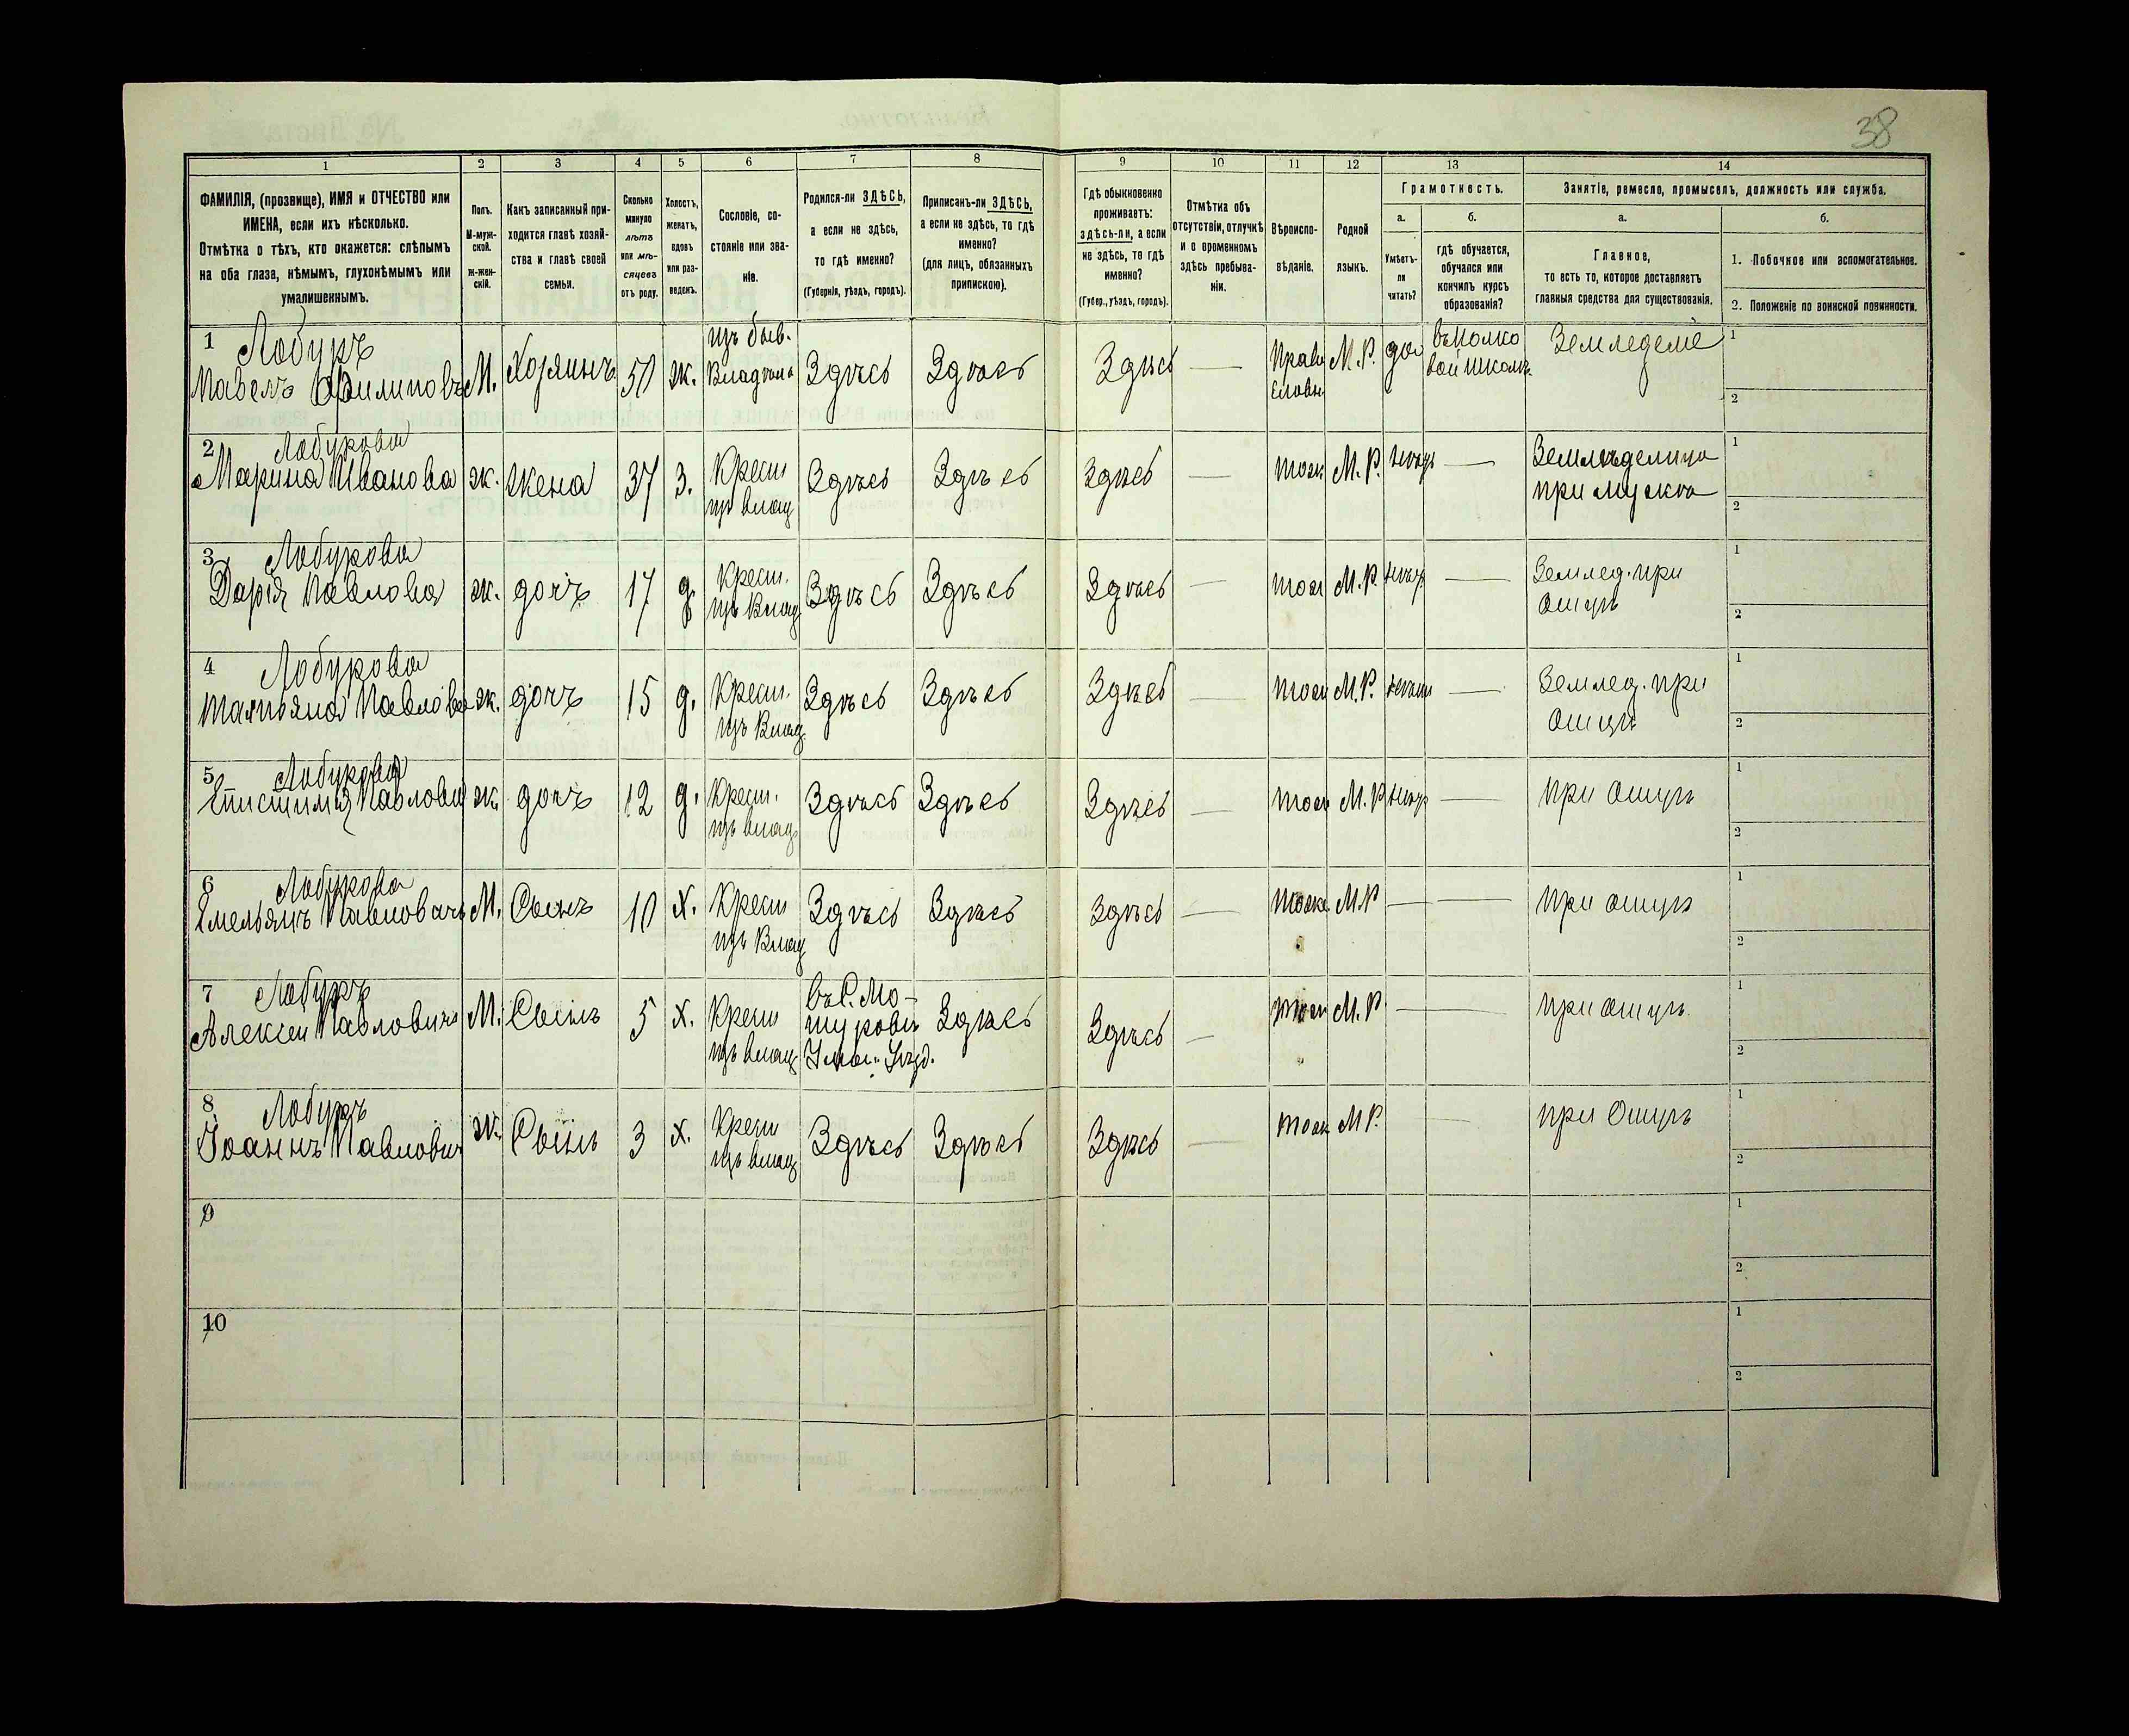 38
1 2 3 4 5 6 7 8 9 10 11 12 13 14
ФАМИЛІЯ, (прозвище), ИМЯ и ОТЧЕСТВО или
ИМЕНА, если ихъ нѣсколько.
Отмѣтка о тѣхъ, кто окажется: слѣпымъ
на оба глаза, нѣмымъ, глухонѣмымъ или
умалишеннымъ.
Полъ.
М-муж-
ской.
ж-жен-
скій.
Какъ записанный при-
ходится главѣ хозяй-
ства и главѣ своей
семьи.
Сколько
минуло
лѣтъ
или мѣ-
сяцевъ
отъ роду.
Холостъ,
женатъ,
вдовъ
или раз-
веденъ.
Сословіе, со-
стояніе или зва-
ніе.
Родился-ли ЗДѢСЬ,
а если не здѣсь,
то гдѣ именно?
(Губернія, уѣздъ, городъ).
Приписанъ-ли ЗДѢСЬ,
а если не здѣсь, то гдѣ
именно?
(для лицъ, обязанныхъ
припискою).
Гдѣ обыкновенно
проживаетъ:
здѣсь-ли, а если
не здѣсь, то гдѣ
именно?
(Губер., уѣздъ, городъ).
Отмѣтка объ
отсутствіи, отлучкѣ
и о временномъ
здѣсь пребыва-
ніи.
Вѣроиспо-
вѣданіе.
Родной
языкъ.
Грамотность.
а.
Умѣетъ-
ли
читать?
б.
гдѣ обучается,
обучался или
кончилъ курсъ
образованія?
Занятіе, ремесло, промыселъ, должность или служба.
а.
Главное,
то есть то, которое доставляетъ
главныя средства для существованія.
б.
1. Побочное или вспомогательное.
2. Положеніе по воинской повинности.
1 Лобуръ изъ быв. 1
Павелъ Филиповъ М. Хозяинъ 50 ж. Здѣсь Здѣсь Здѣсь — Прав М. Р. да Земледеліе
2
2 Лобурова 1
Марина Иванова ж. жена 37 з. Крест Здѣсь Здѣсь Здѣсь — М. Р. — Земледелица
изъ влад при мужѣ 2
3 Лобурова 1
Дарія Павлова ж. дочь 17 д. Крест. Здѣсь Здѣсь Здѣсь — М. Р. — Землед. при
изъ Влад Отцѣ 2
4 Лобурова 1
Татьяна Павлова ж. дочь 15 д. Крест. Здѣсь Здѣсь Здѣсь — М. Р. — Землед. при
изъ Влад Отцѣ 2
5 Лобурова 1
Епистимія Павлова ж. дочь 12 д. Крест. Здѣсь Здѣсь Здѣсь — М. Р — при Отцѣ
изъ влад 2
6 Лобурова 1
Емельянъ Павловичъ М. Сынъ 10 х. Крест Здѣсь Здѣсь Здѣсь — М. Р — — при отцѣ
изъ Влад 2
7 Лобуръ 1
Алексей Павловичъ М. Сынъ 5 х. Крест Здѣсь Здѣсь — М. Р — — при отцѣ.
изъ влад 2
8 Лобуръ 1
Іоаннъ Павлович Сынъ 3 х. Крест Здѣсь Здѣсь Здѣсь — М Р. — при Отцѣ
изъ влад 2
9 1
2
10 1
2